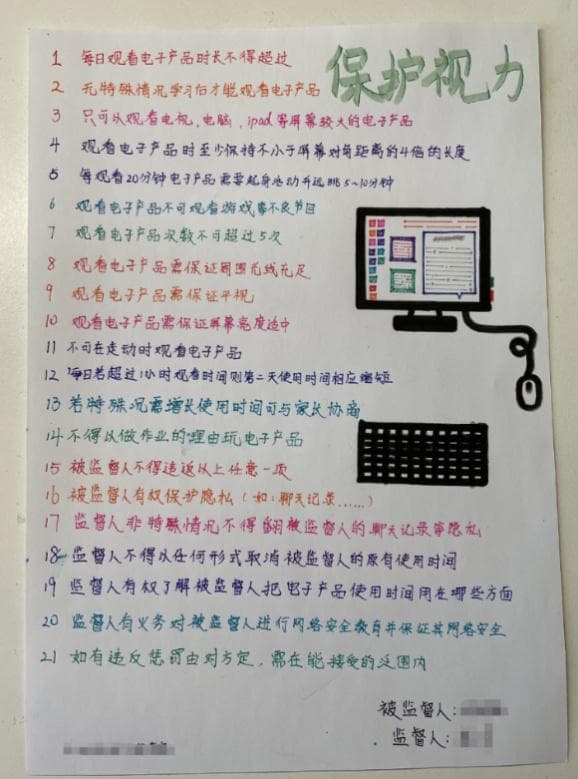 保护视力
1 每日观看电子产品时长不得超过
2 无特殊情况学习后才能观看电子产品
3 只可以观看电视、电脑、ipad等屏幕较大的电子产品
4 观看电子产品时至少保持不小于屏幕对角距离的4倍的长度
5 每观看20分钟电子产品需要起身活动并远眺5~10分钟
6 观看电子产品不可观看游戏等不良节目
7 观看电子产品次数不可超过5次
8 观看电子产品需保证周围光线充足
9 观看电子产品需保证平视
10 观看电子产品需保证屏幕亮度适中
11 不可在走动时观看电子产品
12 每日若超过1小时观看时间则第二天使用时间相应缩短
13 若特殊况需增长使用时间可与家长协商
14 不得以做作业的理由玩电子产品
15 被监督人不得违返以上任意一项
16 被监督人有权保护隐私(如:聊天记录……)
17 监督人非特殊情况不得翻被监督人的聊天记录等隐私
18 监督人不得以任何形式取消被监督人的原有使用时间
19 监督人有权了解被监督人把电子产品使用时间用在哪些方面
20 监督人有义务对被监督人进行网络安全教育并保证其网络安全
21 如有违反惩罚由对方定,需在能接受的范围内
被监督人:
监督人: